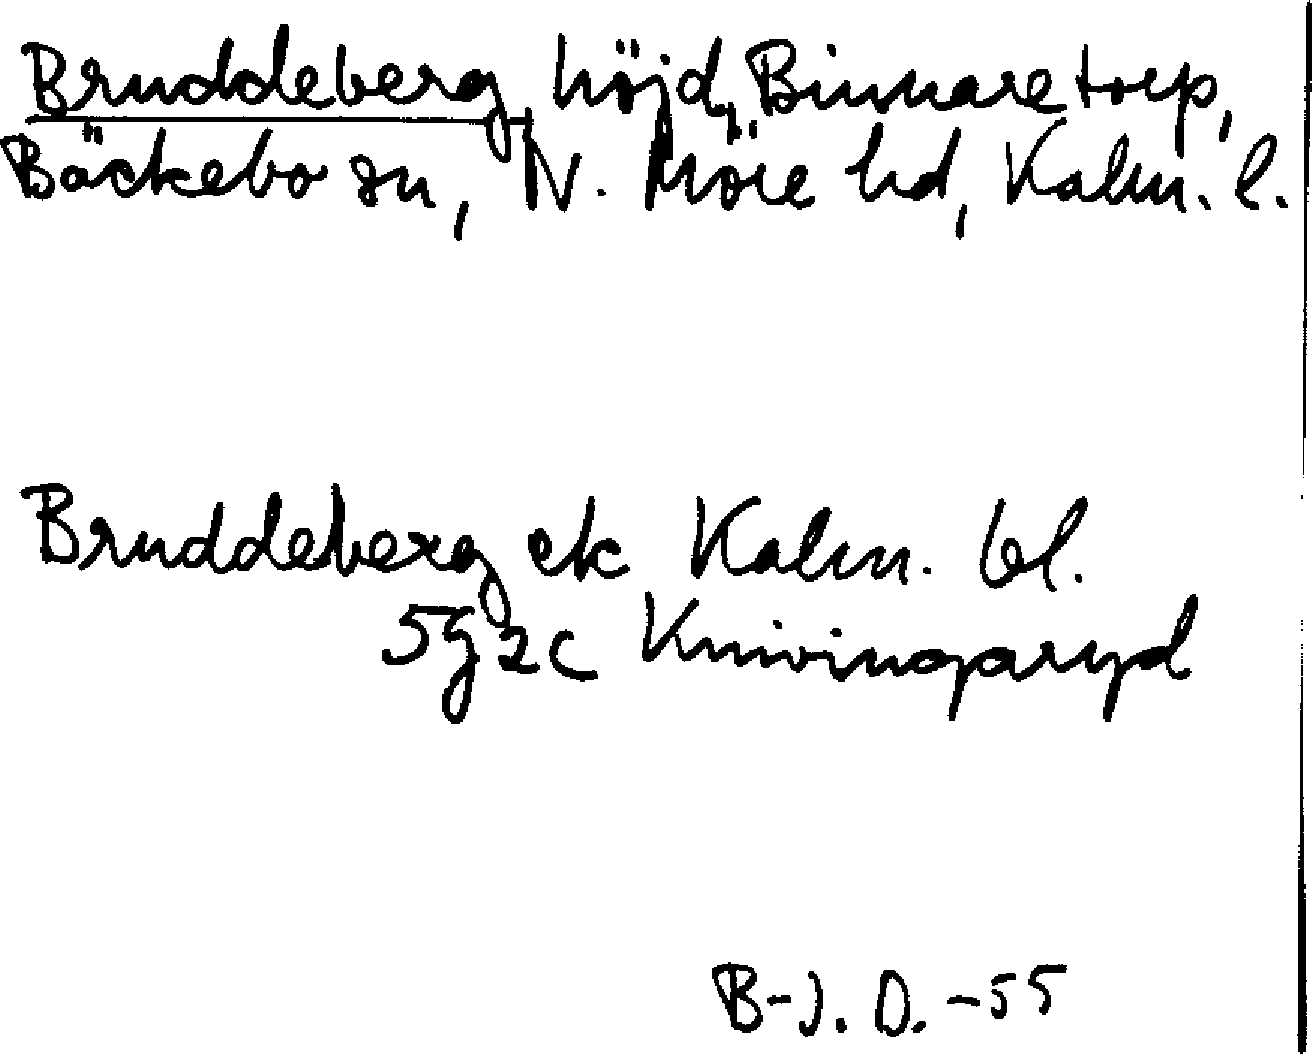 Bruddeberg, höjd, Binnaretorp,
Bäckebo sn, N. Möre hd, Kalm. l.
Bruddeberg ek Kalm. bl.
5g2c Knivingaryd
B-J. O. -55